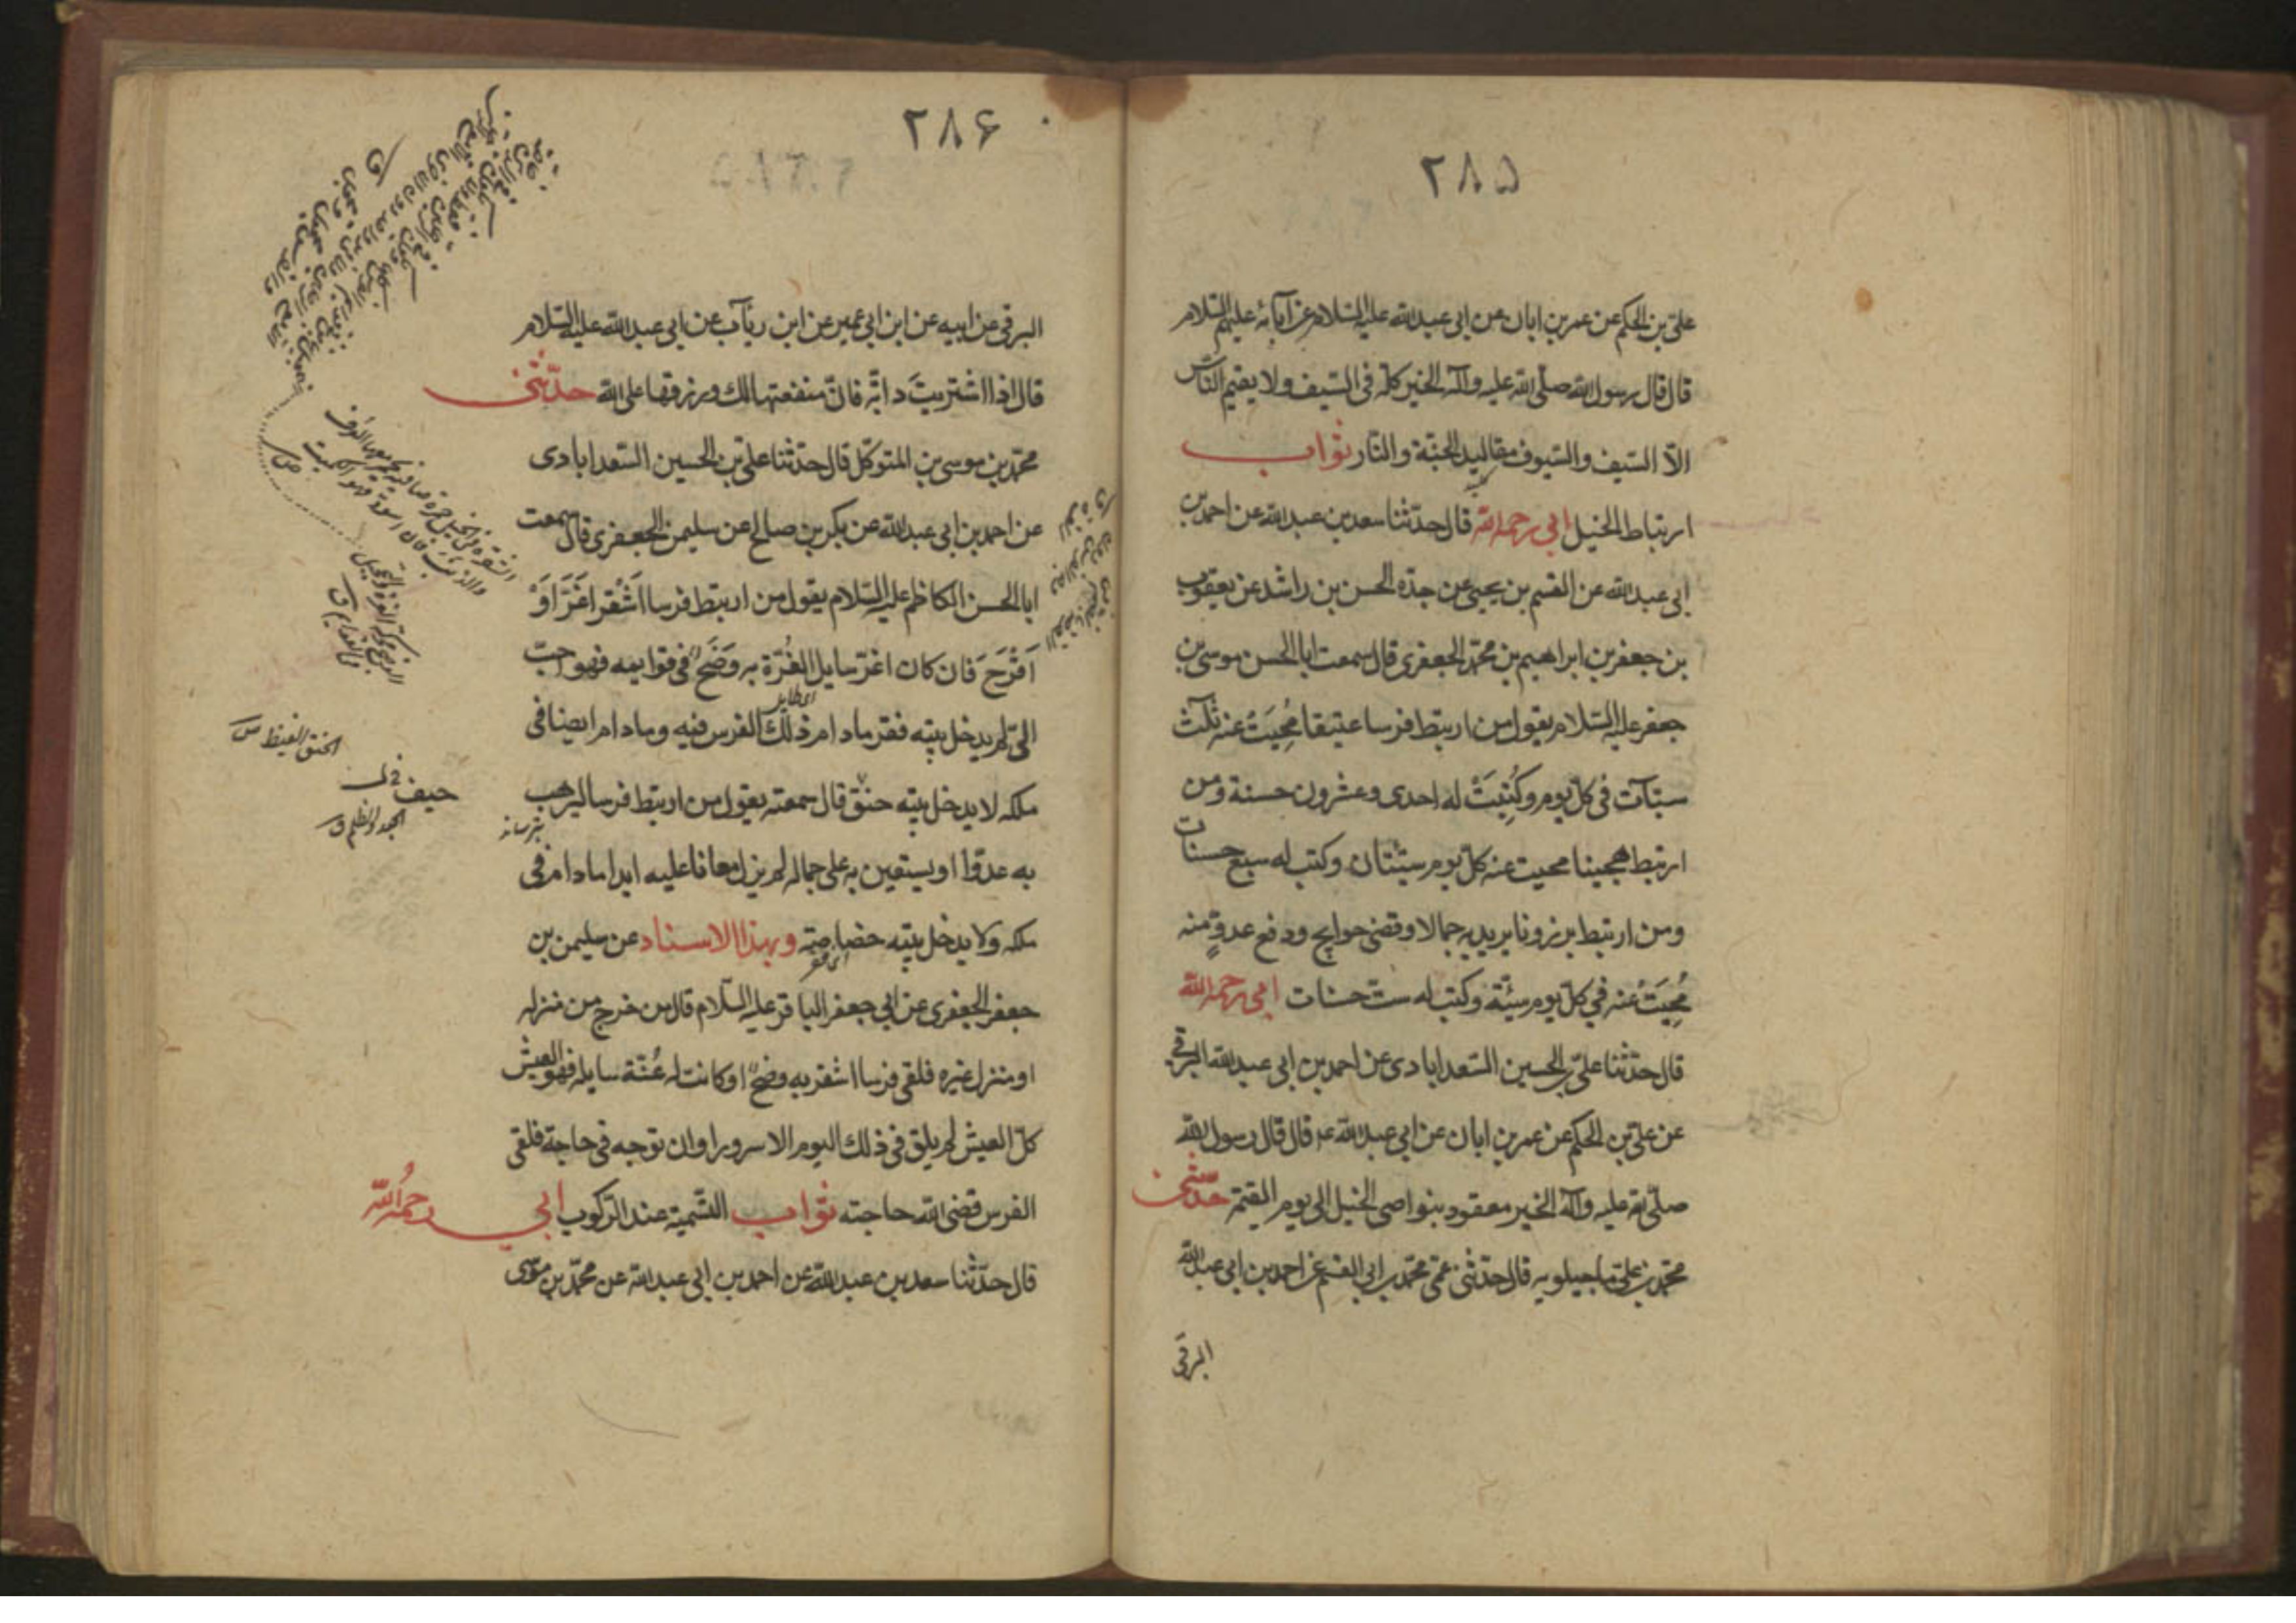 ٢٨۵
علی بن الحکم عن عمر بن ابان عن ابی عبدالله علیه السلام عن آبائه علیهم السلام
قال قال رسول الله صلّی الله علیه وآله الخیر کله فی السّیف ولا یقیم النّاس
الاّ السّیف والسّیوف مقالید الجنّة والنّار ثواب
ارتباط الخیل ابی رحمه الله قال حدّثنا سعد بن عبدالله عن احمد بن
ابی عبدالله عن القسم بن یحیی عن جدّه الحسن بن راشد عن یعقوب
بن جعفر بن ابراهیم بن محمّد الجعفری قال سمعت ابا الحسن موسی بن
جعفر علیه السّلام یقول من ارتبط فرسا عتیقا مُحِیَتْ عنه ثلث
سیّآت فی کلّ یوم وکُتِبَتْ له احدی وعشرون حسنة ومن
ارتبط هجینا محیت عنه کلّ یوم سیّئتان وکتب له سبع حسنات
ومن ارتبط برذونا یرید به جمالا وقضی حوایج ودفع عدوٍّ منه
مُحِیَتْ عنه فی کلّ یوم سیّئة وکتب له ستّ حسنات ابی رحمه الله
قال حدّثنا علیّ بن الحسین السّعدابادی عن احمد بن ابی عبدالله البرقی
عن علیّ بن الحکم عن عمر بن ابان عن ابی عبدالله ع قال قال رسول الله
صلّی الله علیه وآله الخیر معقود بنواصی الخیل الی یوم القیمة حدّثنی
محمّد بن علیّ ماجیلویه قال حدّثنی عمّی محمّد بن ابی القسم عن احمد بن ابی عبدالله
البرقی
٢٨۶
البرقی عن ابیه عن ابن ابی عمیر عن ابن رئاب عن ابی عبدالله علیه السّلام
قال اذا اشتریتَ دابّه فانّ منفعتها لك ورزقها علی الله حدّثنی
محمّد بن موسی بن المتوکّل قال حدّثنا علیّ بن الحسین السّعدابادی
عن احمد بن ابی عبدالله عن بکر بن صالح عن سلیمن الجعفری قال سمعت
ابا الحسن الکاظم علیه السّلام یقول من ارتبط فرسا اَشْقَر اَغَرَّ اَوْ
اَقْرَحَ فان کان اغرّ سایل الغُرّة به وَضَحٌ فی قوایمه فهو احبّ
الیّ لم یدخل بیته فقر مادام ذلك الفرس فیه ومادام ایضا فی
ملکه لا یدخل بیته حنق قال سمعته یقول من ارتبط فرسا لیرهب
بترساند
به عدوّا او یستعین به علی جماله لم یزل معانا علیه ابدا مادام فی
ملکه ولا یدخل بیته خصاصة وبهذا الاسناد عن سلیمن بن
جعفر الجعفری عن ابی جعفر الباقر علیه السّلام قال من خرج من منزله
او منزل غیره فلقی فرسا اشقر به وضحٌ او کانت له غُرّة سایله فهو العیش
کلّ العیش لم یلق فی ذلك الیوم الا سرورا وان توجه فی حاجة فلقی
الفرس قضی الله حاجته ثواب التّسمیة عند الرّکوب ابی رحمُه الله
قال حدّثنا سعد بن عبدالله عن احمد بن ابی عبدالله عن محمّد بن موسی
الحنق الغیظ س
حیف خ ل
الجور والظلم ق